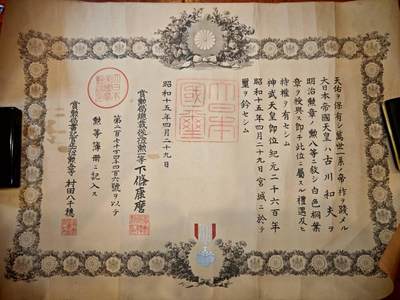 天佑ヲ保有シ萬世一系ノ帝祚ヲ踐メル
大日本帝國天皇ハ古川和夫ヲ
明治勲章ノ勲八等ニ敍シ白色桐葉
章ヲ授與ス即チ此位ニ屬スル禮遇及ヒ
特權ヲ有セシム
神武天皇即位紀元二千六百年
昭和十五年四月二十九日宮城ニ於テ
璽ヲ鈐セシム
大日本
國璽
昭和十五年四月二十九日
賞勲局總裁從四位勲二等下條康麿
ヲ以テ
勲等簿冊ニ記入ス
村田八千穗